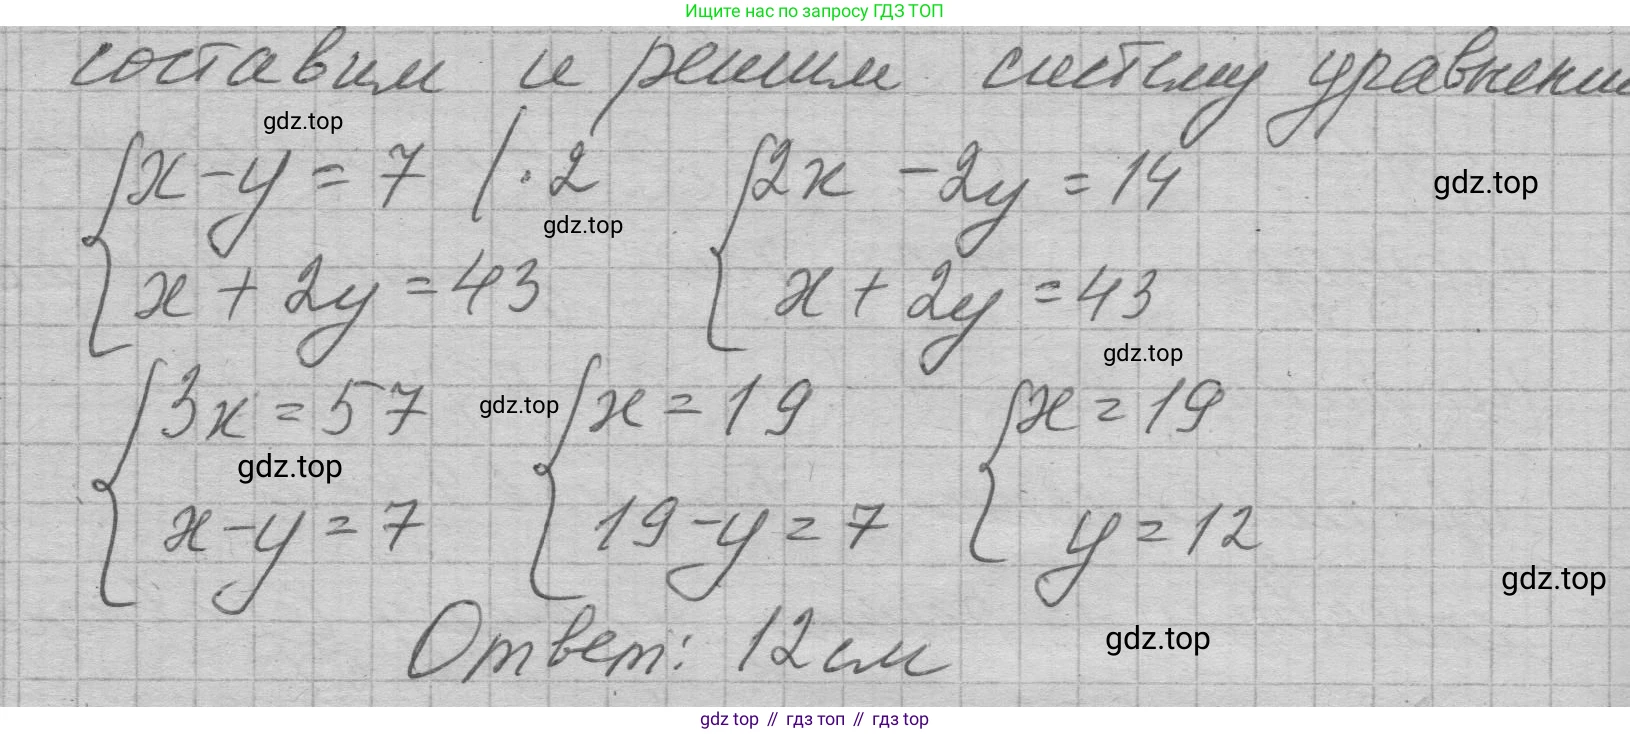 Ищите нас по запросу ГДЗ ТОП
составим и решим систему уравнени
gdz.top
x-y=7 |·2 2x-2y=14
gdz.top
gdz.top
x+2y=43 x+2y=43
gdz.top
3x=57 x=19 x=19
gdz.top
gdz.top
x-y=7 19-y=7 y=12
gdz.top
Ответ: 12см
gdz.top
gdz top // гдз топ // гдз top